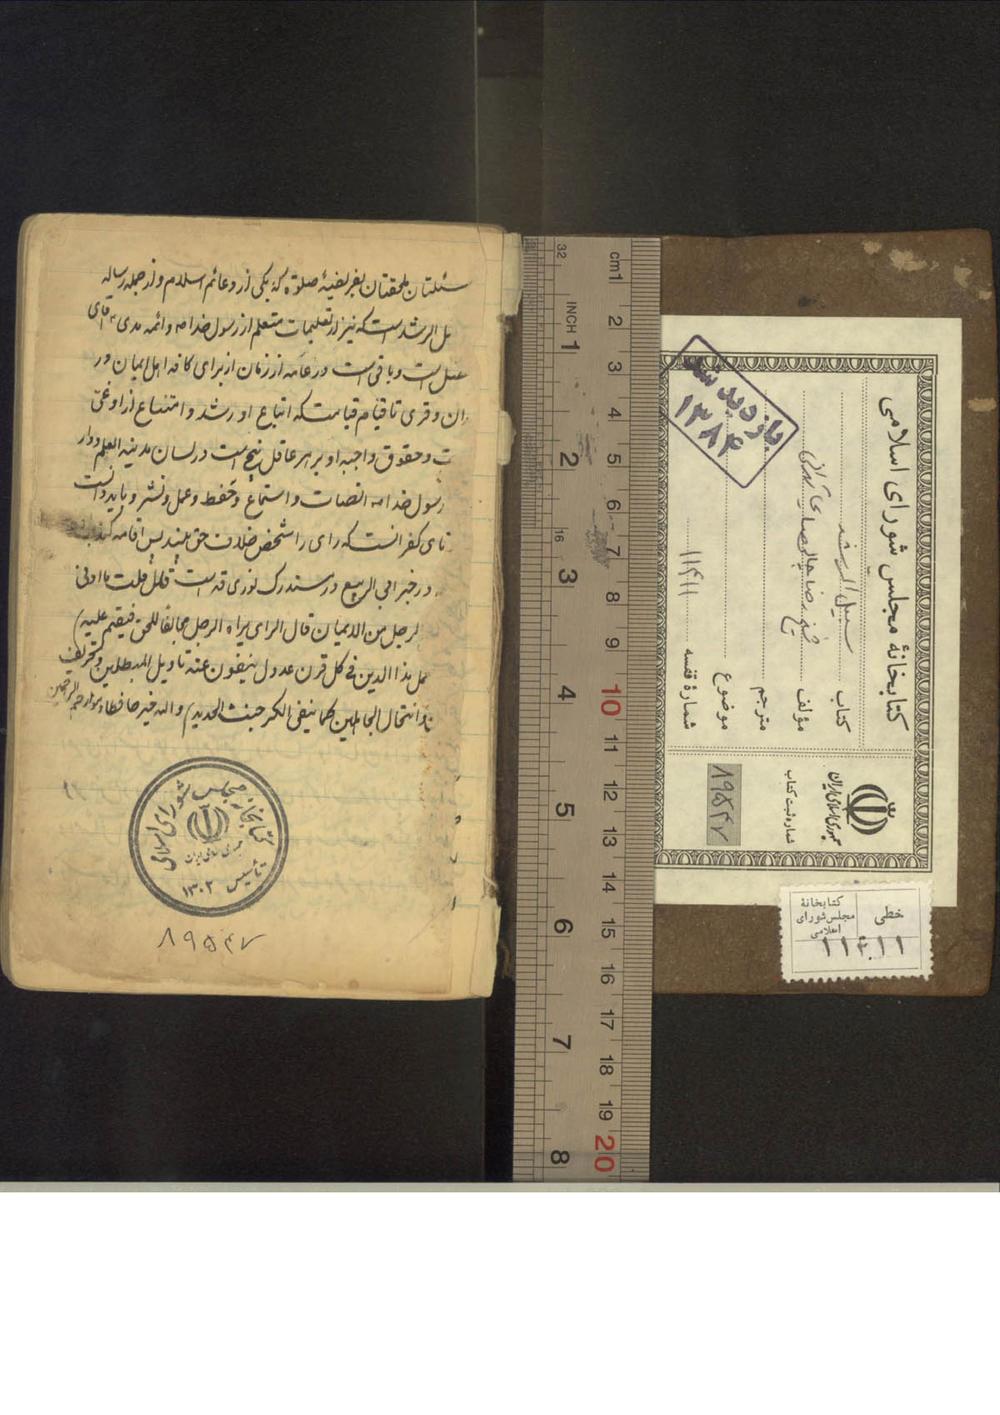 کتابخانهٔ مجلس شورای اسلامی
کتاب سبیل الرشد
مؤلف شیخ رضا
مترجم
موضوع
شمارهٔ قفسه ۱۱۴۱۱
جمهوری اسلامی ایران
شماره ثبت کتاب
۸۹۵۴۷
بازدید شد
۱۳۸۴
خطی
کتابخانهٔ
مجلس شورای
اسلامی
cm1 2 3 4 5 6 7 8 9 10 11 12 13 14 15 16 17 18 19 20
32 INCH 1 2 16 3 4 5 6 7 8
صلوة که یکی از دعائم اسلام و از جمله رساله
الرشد است که نیز از تعلیمات متعلم از رسول خدا ص و ائمه هدی
است و باقی است در عامه از زمان از برای کافه اهل ایمان در
ان و قری تا قیام قیامت که اتباع او رشد و امتناع از او غی
ت و حقوق واجبه او بر هر عاقل پنج است در لسان مدینة العلم
رسول خدا ص انصات و استماع و حفظ و عمل و نشر و باید دانست
کفر انست که رای را شخص خلاف حق
در خبر ابی الربیع در مستدرک نوری قده است قال قلت ما ادنی
الرجل من الایمان قال الرای یراه الرجل مخالفا للحق فیقیم علیه
هذا الدین فی کل قرن عدول ینفون عنه تاویل المبطلین و تحریف
و انتحال الجاهلین کما ینفی الکیر خبث الحدید و الله خیر حافظا و هو ارحم الراحمین
کتابخانه مجلس شورای اسلامی
جمهوری اسلامی ایران
تأسیس ۱۳۰۲
۸۹۵۴۷